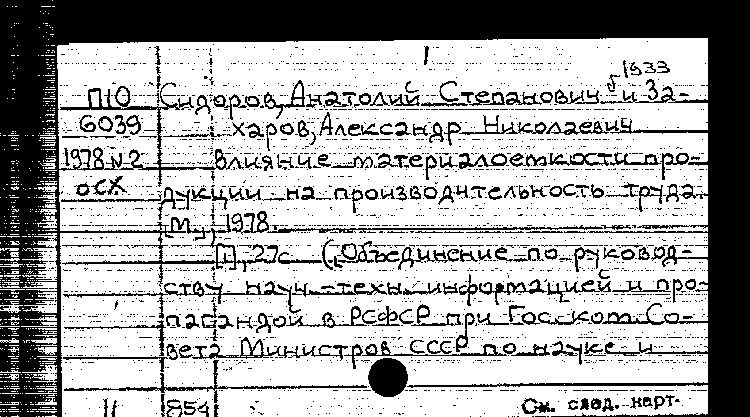 1933
П10 Сидоров, Анатолий Степанович и За-
6039 харов, Александр Николаевич
1978 N2 Влияние материалоемкости про-
ОСХ дукции на производительность труда.
[М.], 1978.
[1], 27с ([Объединение по руковод-
ству науч.-техн. информацией и про-
пагандой в РСФСР при Гос. ком. Со-
вета Министров СССР по науке и
11 854 См. след. карт.